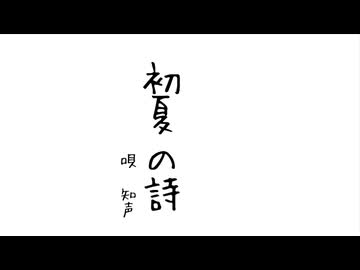 初夏の詩
唄 知声